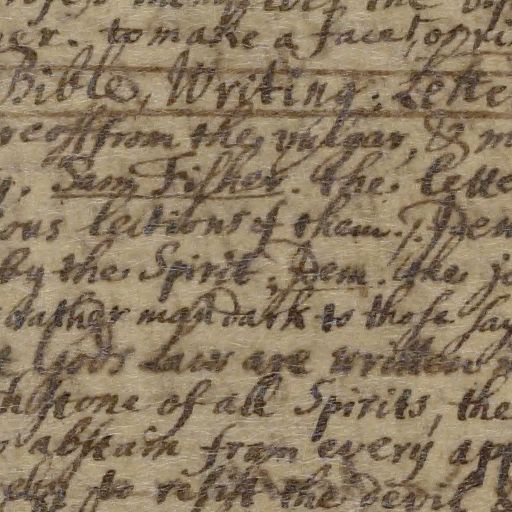 the
to make a face, or
Bible, Writing, Lette
off from the vulgar, & m
Sam Fisher. the lette
ous lections of them. Dem
by the Spirit, Dem. the
rather man dark to those say
Gods Laws are written
stone of all Spirits, the
abstain from every app
to resist the devil